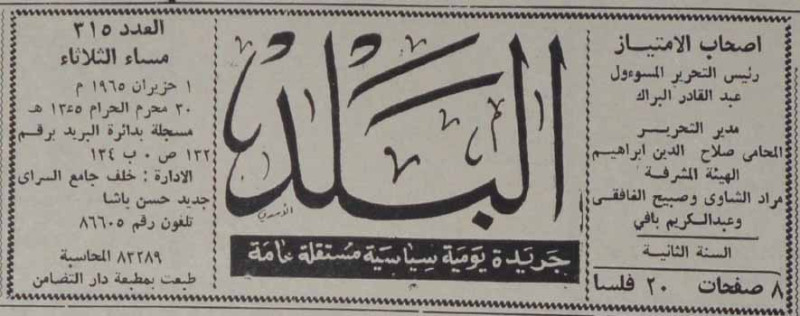 اصحاب الامتياز
رئيس التحرير المسوءول
عبد القادر البراك
مدير التحرير
المحامى صلاح الدين ابراهيم
الهيئة المشرفة
مراد الشاوى وصبيح الغافقى
وعبدالكريم بافي
السنة الثانية
٨ صفحات ٢٠ فلسا
البلد
جريدة يومية سياسية مستقلة عامة
العدد ٣١٥
مساء الثلاثاء
١ حزيران ١٩٦٥ م
٣٠ محرم الحرام ١٣٤٥ هـ
مسجلة بدائرة البريد برقم
١٣٢ ص ٠ ب ١٣٤
الادارة : خلف جامع السراى
جديد حسن باشا
تلفون رقم ٨٦٦٠٥
٨٣٢٨٩ المحاسبة
طبعت بمطبعة دار التضامن